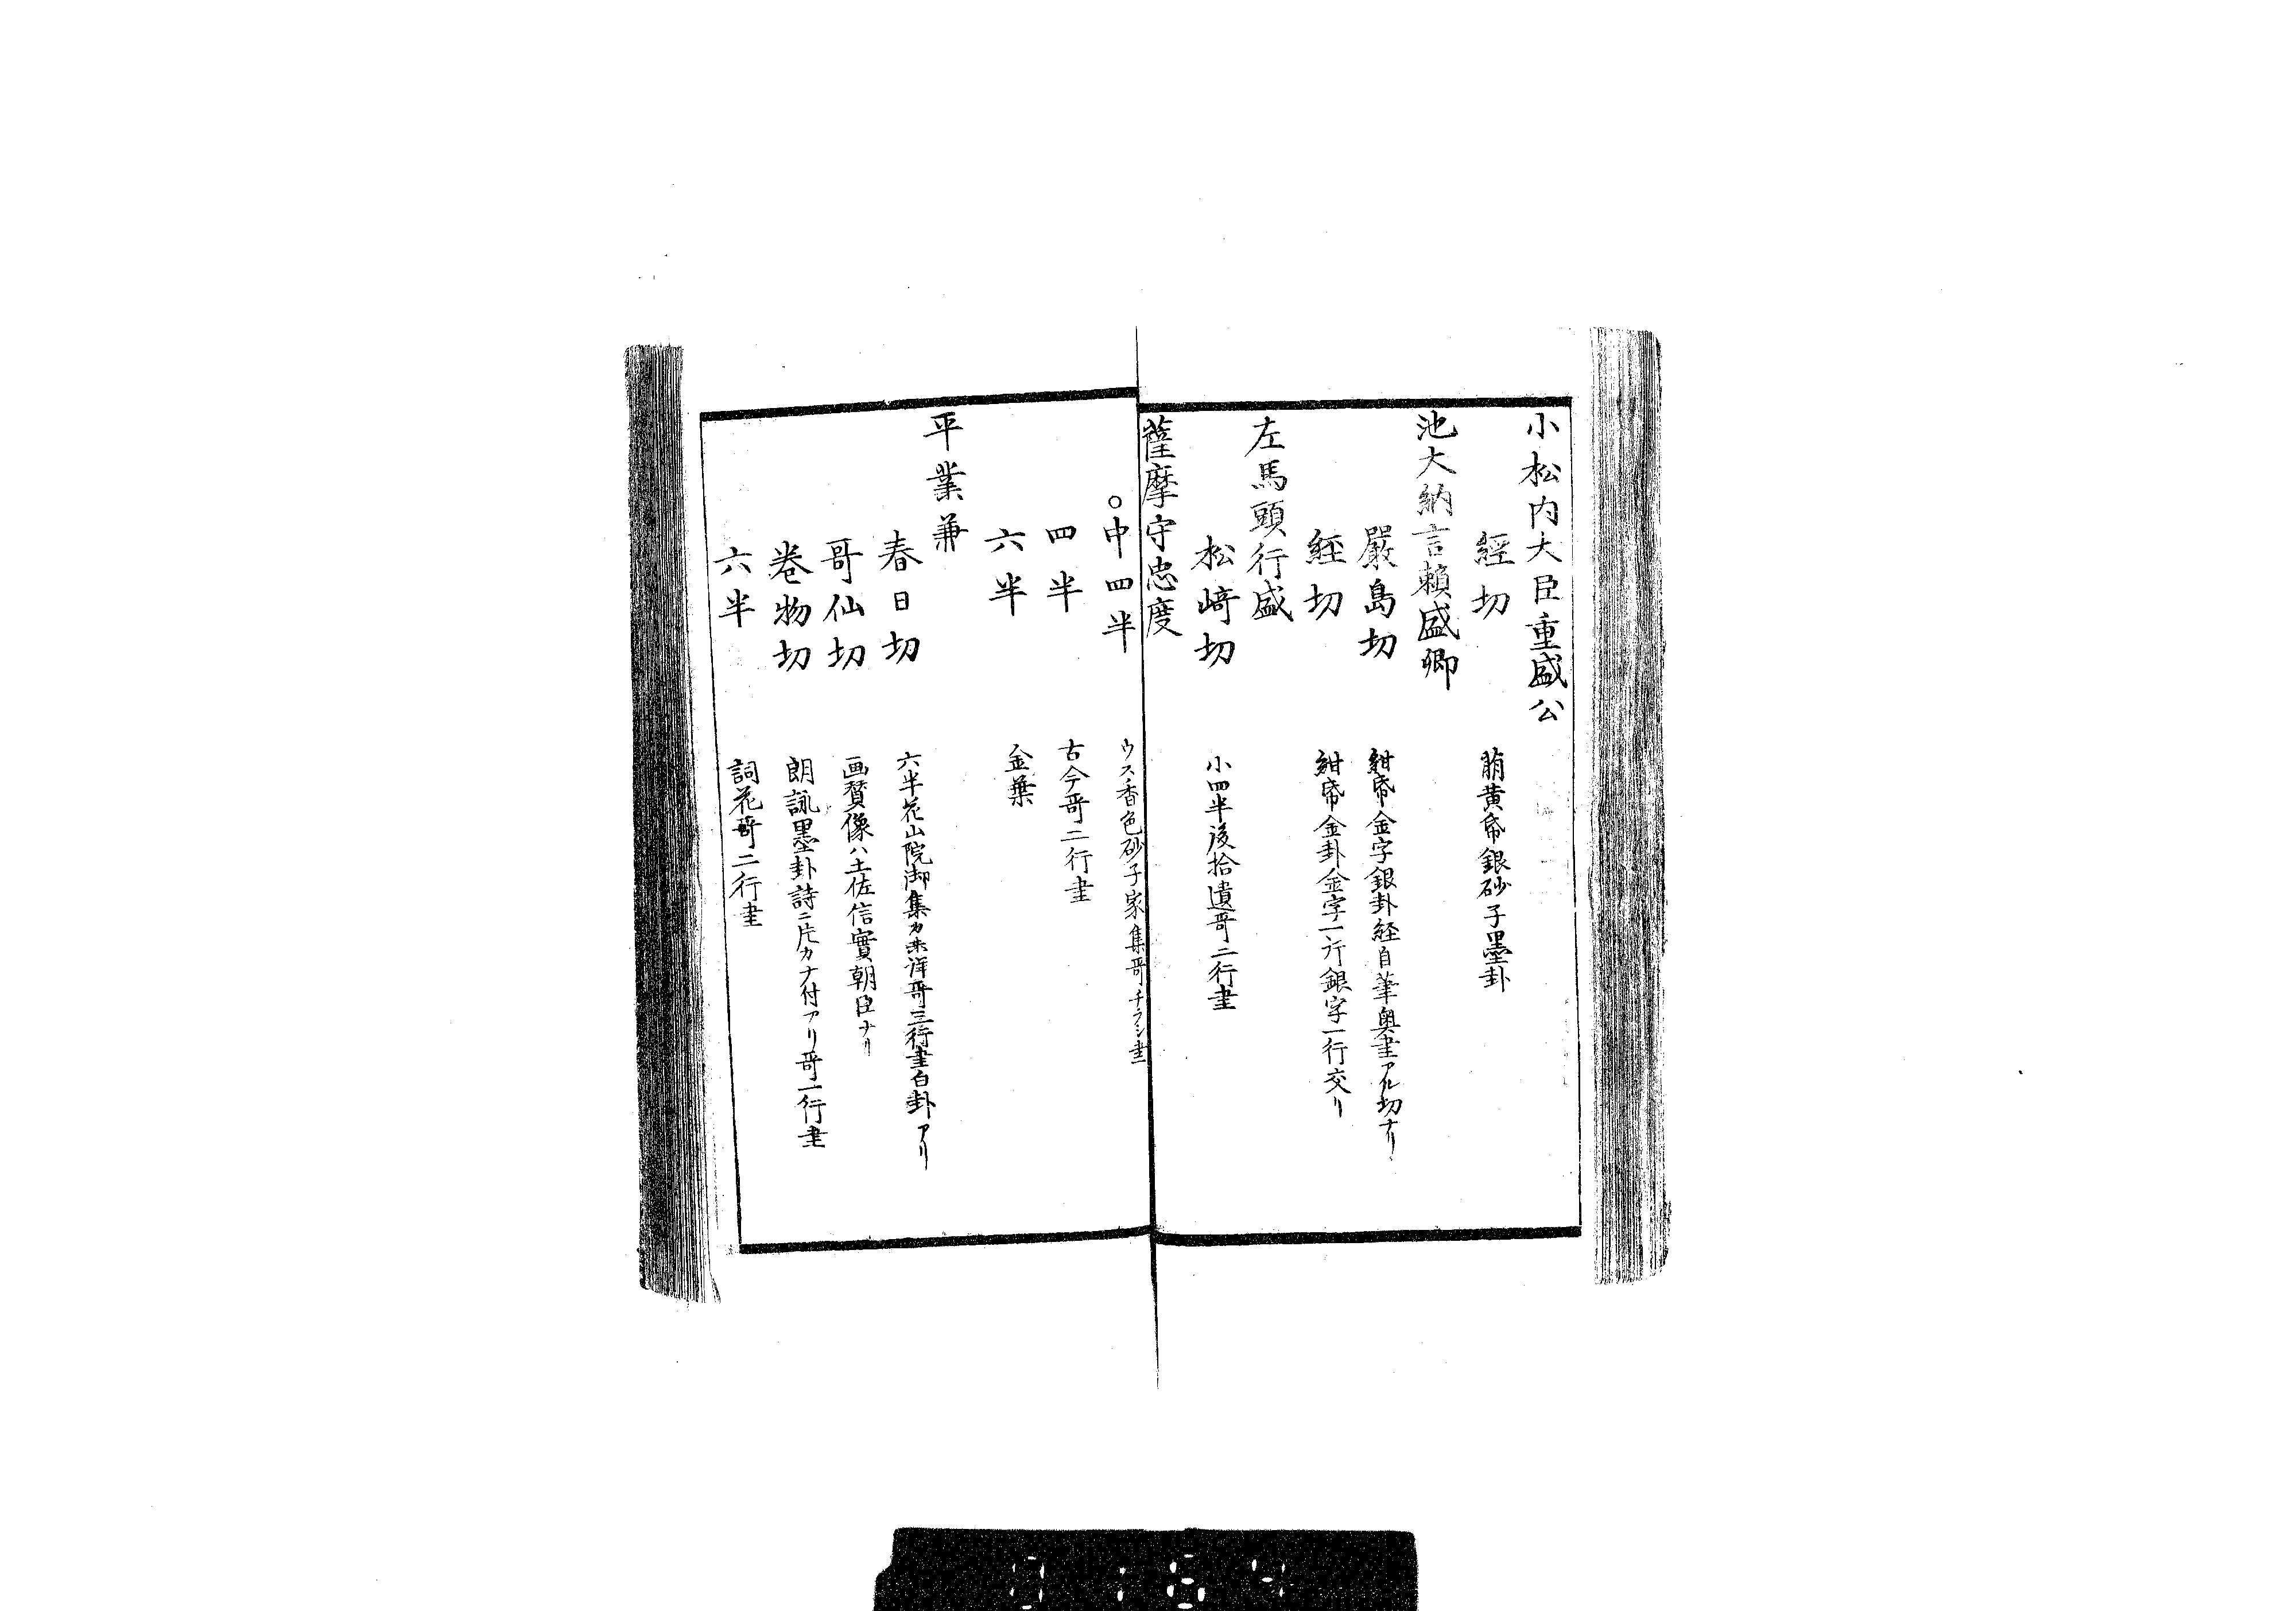 小松内大臣重盛公
經切　萠黄帋銀砂子墨卦
池大納言頼盛卿
嚴島切　紺帋金字銀卦経自筆奥書アル切ナリ
経切　紺帋金卦金字一行銀字一行交リ
左馬頭行盛
松﨑切　小四半後拾遺哥二行書
薩摩守忠度
○中四半　ウス香色砂子家集哥チラシ書
四半　古今哥二行書
六半　金葉
平業兼
春日切　六半花山院御集カ未詳哥三行書白卦アリ
哥仙切　画賛像ハ土佐信實朝臣ナリ
巻物切　朗詠墨卦詩ニ片カナ付アリ哥一行書
六半　詞花哥二行書